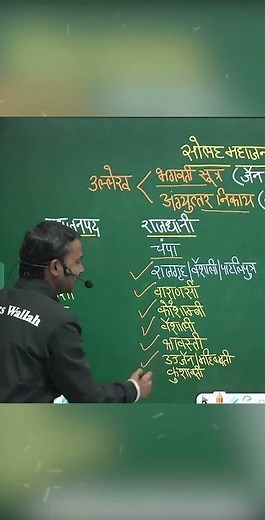 सोलह महाजन
उल्लेख
भगवती सूत्र (जैन
अंगुत्तर निकाय (
राजधानी
चंपा
राजगृह/वैशाली/पाटलिपुत्र
वाराणसी
कौशाम्बी
वैशाली
श्रावस्ती
उज्जैन/महिष्मती
कुशावती
s Wallah